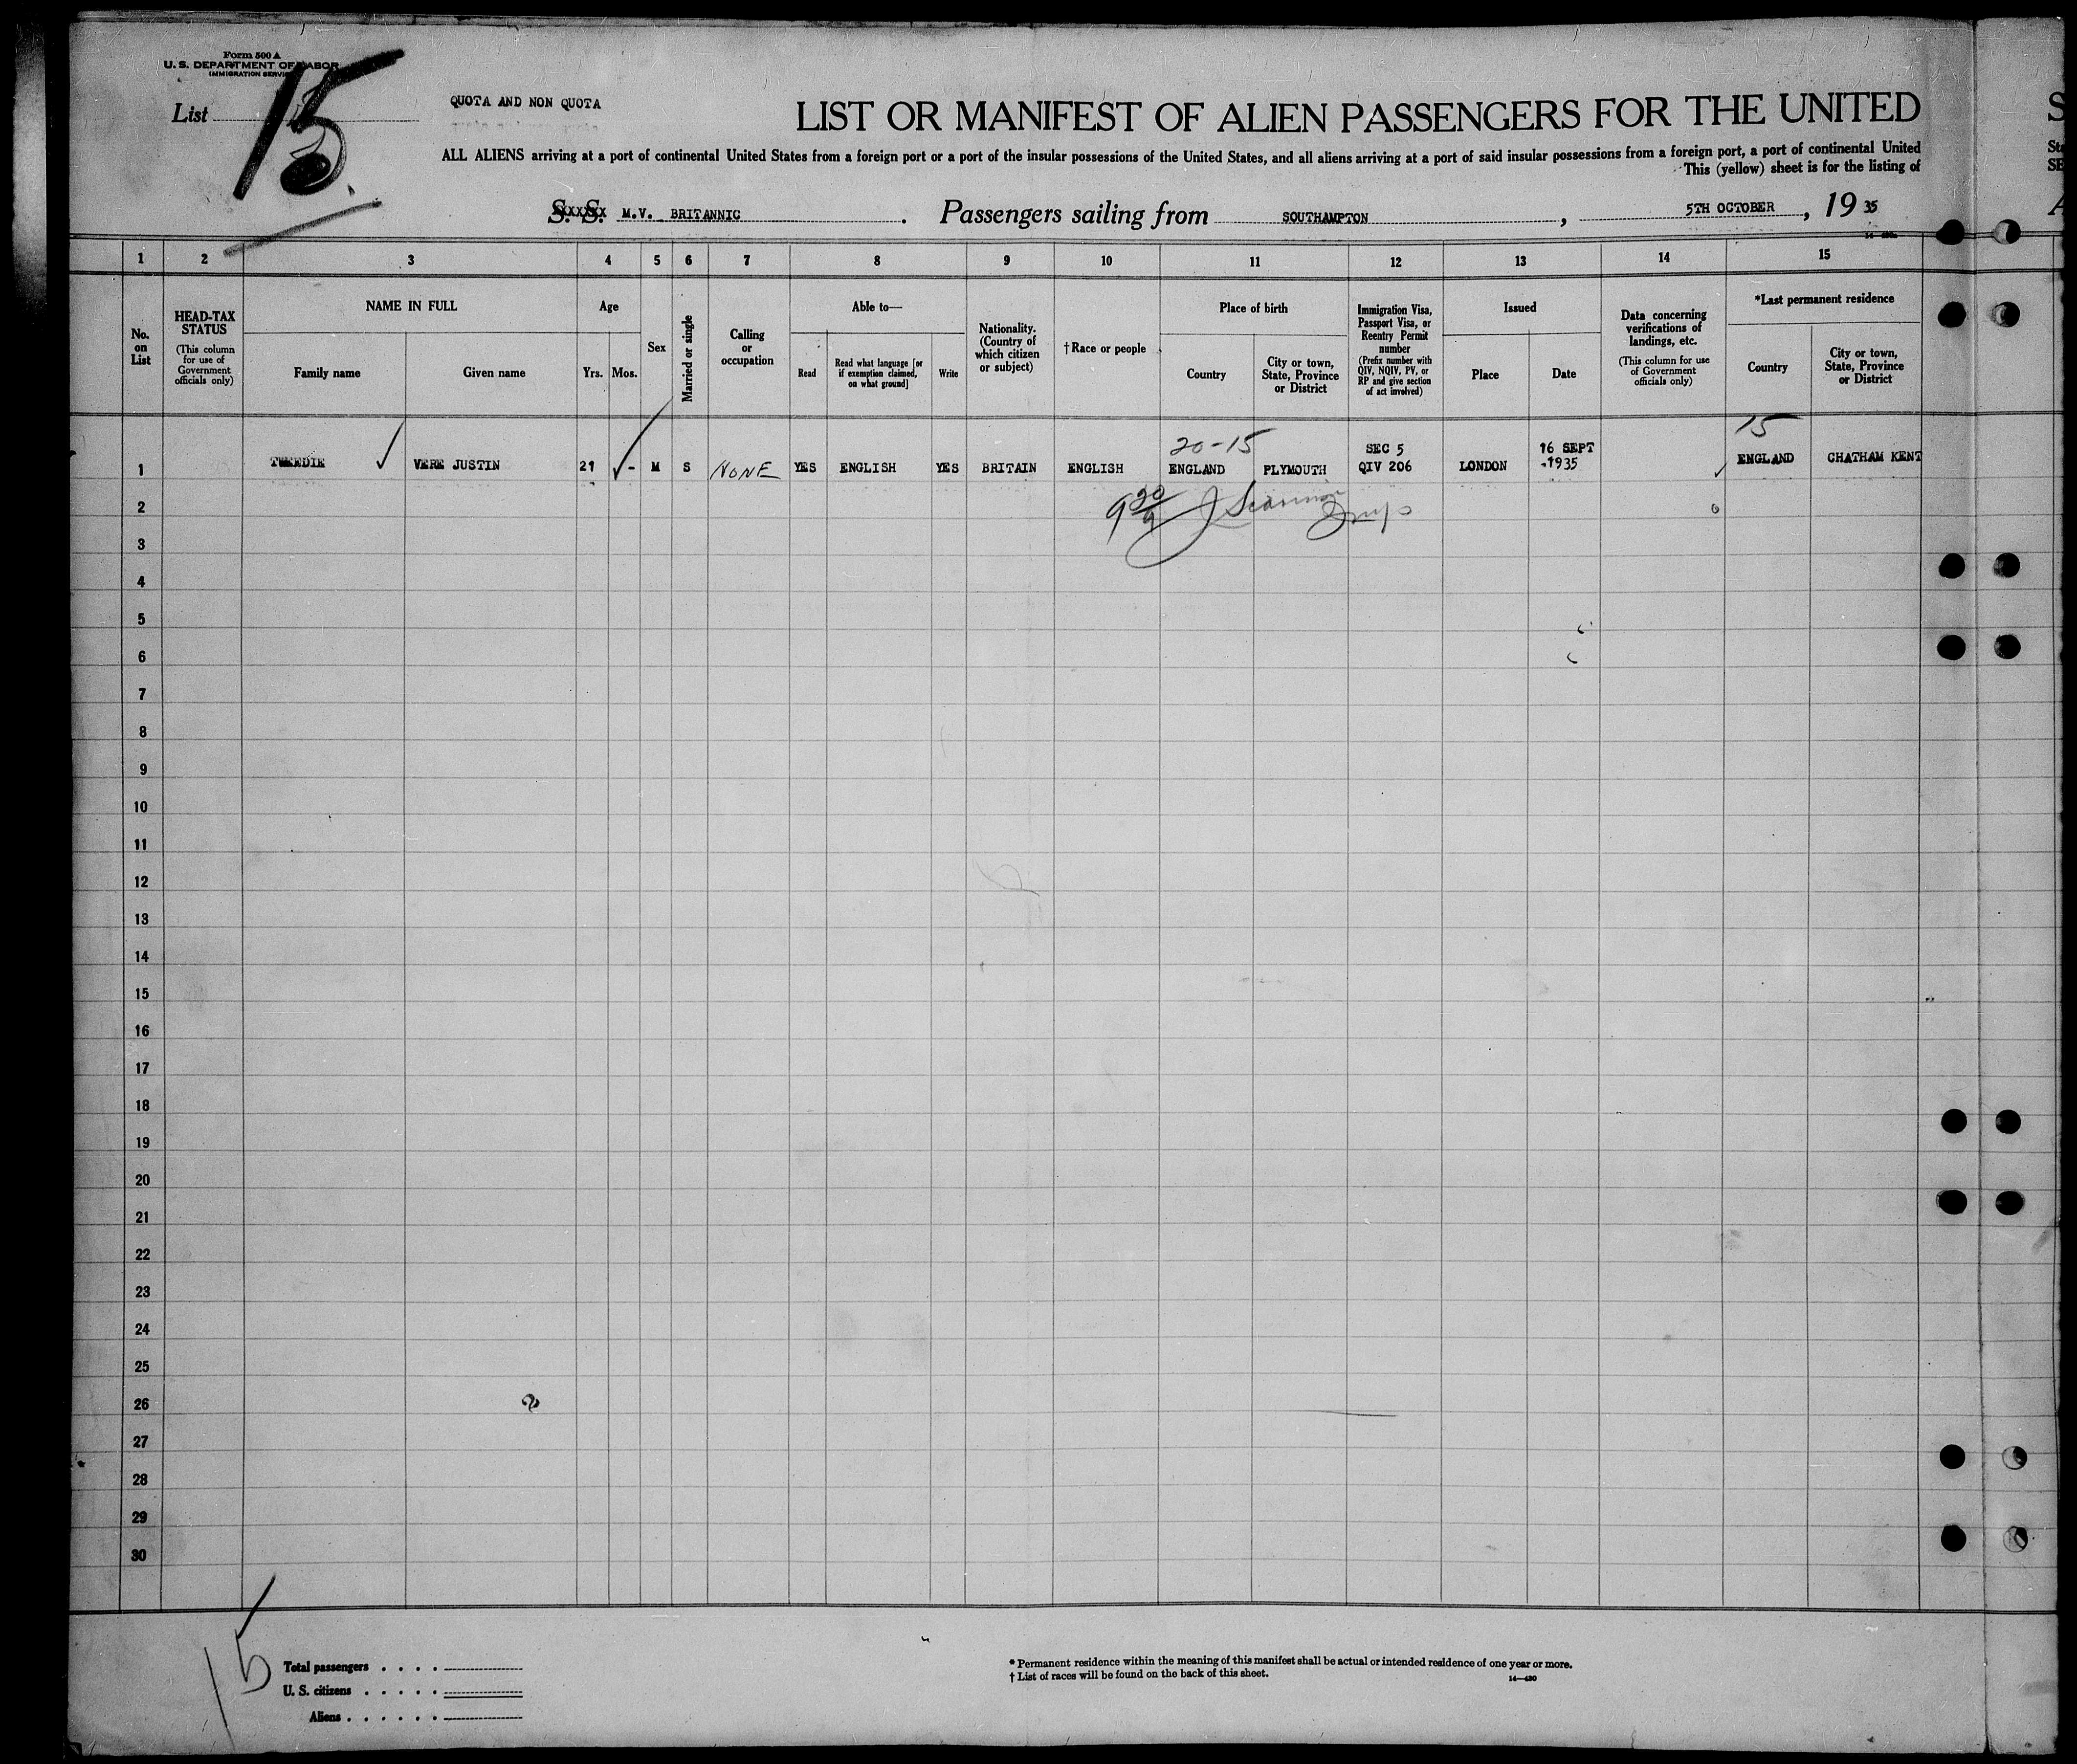 Form 500 A
U. S. DEPARTMENT OF LABOR
IMMIGRATION SERVICE
List 15
QUOTA AND NON QUOTA
LIST OR MANIFEST OF ALIEN PASSENGERS FOR THE UNITED
ALL ALIENS arriving at a port of continental United States from a foreign port or a port of the insular possessions of the United States, and all aliens arriving at a port of said insular possessions from a foreign port, a port of continental United
This (yellow) sheet is for the listing of
S. S. M.V. BRITANNIC . Passengers sailing from SOUTHAMPTON , 5TH OCTOBER , 19 35
1 2 3 4 5 6 7 8 9 10 11 12 13 14 15
No. on List
HEAD-TAX STATUS
(This column for use of Government officials only)
NAME IN FULL
Family name
Given name
Age
Yrs.
Mos.
Sex
Married or single
Calling or occupation
Able to—
Read
Read what language [or if exemption claimed, on what ground]
Write
Nationality. (Country of which citizen or subject)
† Race or people
Place of birth
Country
City or town, State, Province or District
Immigration Visa, Passport Visa, or Reentry Permit number
(Prefix number with QIV, NQIV, PV, or RP and give section of act involved)
Issued
Place
Date
Data concerning verifications of landings, etc.
(This column for use of Government officials only)
*Last permanent residence
Country
City or town, State, Province or District
20-15
15
SEC 5
16 SEPT
1 TWEEDIE VERE JUSTIN 21 - M S NONE YES ENGLISH YES BRITAIN ENGLISH ENGLAND PLYMOUTH QIV 206 LONDON 1935 ENGLAND CHATHAM KENT
2
3
4
5
6
7
8
9
10
11
12
13
14
15
16
17
18
19
20
21
22
23
24
25
26
27
28
29
30
15
Total passengers . . . .
U. S. citizens . . . . .
Aliens . . . . . .
* Permanent residence within the meaning of this manifest shall be actual or intended residence of one year or more.
† List of races will be found on the back of this sheet.
14—430